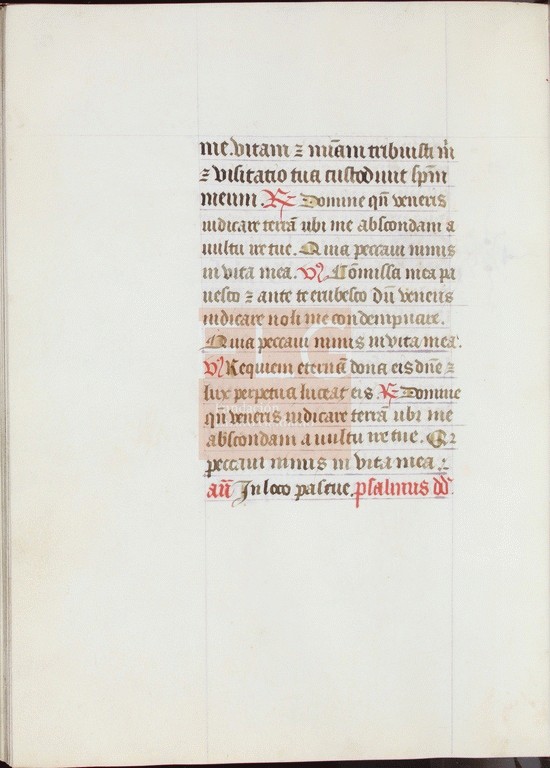 me. vitam ⁊ miẜam tribuisti m̄
⁊ visitatio tua custodiuit spm̄
meum. ℟ Domine qn̄ veneris
iudicare terrā ubi me abscondam a
uultu ire tue. Quia peccaui nimis
in vita mea. ℣ Cōmissa mea pa
uesco ⁊ ante te erubesco dū veneris
iudicare noli me condempnare.
Quia peccaui nimis in vita mea.
℣ Requiem eternā dona eis dn̄e ⁊
lux perpetua luceat eis. ℟ Domine
qn̄ veneris iudicare terrā ubi me
abscondam a uultu ire tue. Q2
peccaui nimis in vita mea :
an̄ In loco pascue. psalmus dd̄.